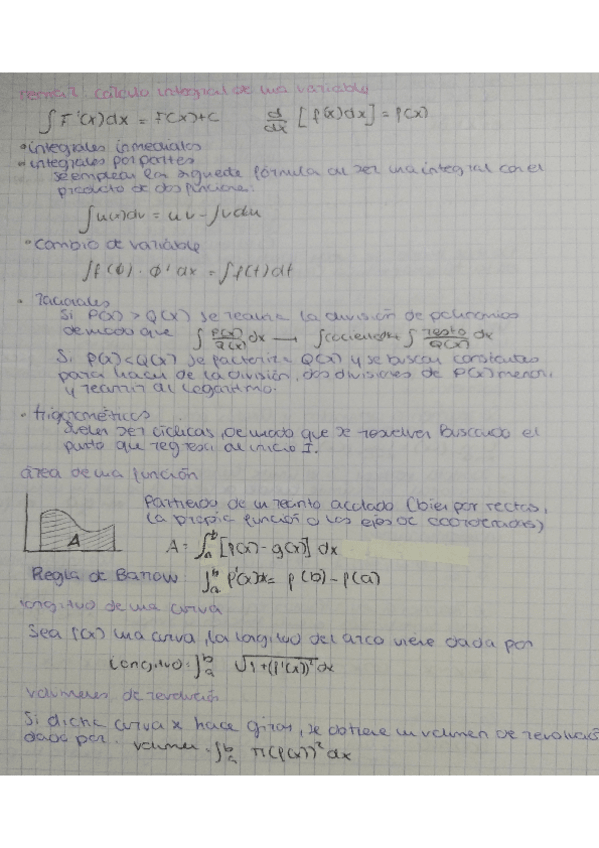 tema 7: cálculo integral de una variable
∫F'(x)dx = F(x)+C   d/dx [f(x)dx] = f(x)
• integrales inmediatas
• integrales por partes
se emplea la siguiente fórmula al ser una integral con el
producto de dos funciones:
∫u(x)dv = uv - ∫vdu
• cambio de variable
∫f(Φ)·Φ' dx = ∫f(t)dt
• racionales
Si P(x) > Q(x) se realiza la división de polinomios
de modo que ∫ P(x)/Q(x) dx → ∫cociente dx + ∫ resto/Q(x) dx
Si P(x) < Q(x) se factoriza Q(x) y se buscan constantes
para hacer de la división, dos divisiones de P(x) menor,
y tender al logaritmo.
• trigonométricas
Suelen ser cíclicas, de modo que se resuelven buscando el
punto que regresa al inicio I.
área de una función
Partiendo de un recinto acotado (bien por rectas,
la propia función o los ejes de coordenadas)
A
A = ∫ₐᵇ [f(x) - g(x)] dx
Regla de Barrow: ∫ₐᵇ f'(x)dx = f(b) - f(a)
longitud de una curva
Sea f(x) una curva, la longitud del arco viene dada por
longitud = ∫ₐᵇ √1+(f'(x))² dx
volúmenes de revolución
Si dicha curva se hace girar, se obtiene un volumen de revolución
dado por: volumen = ∫ₐᵇ π(f(x))² dx